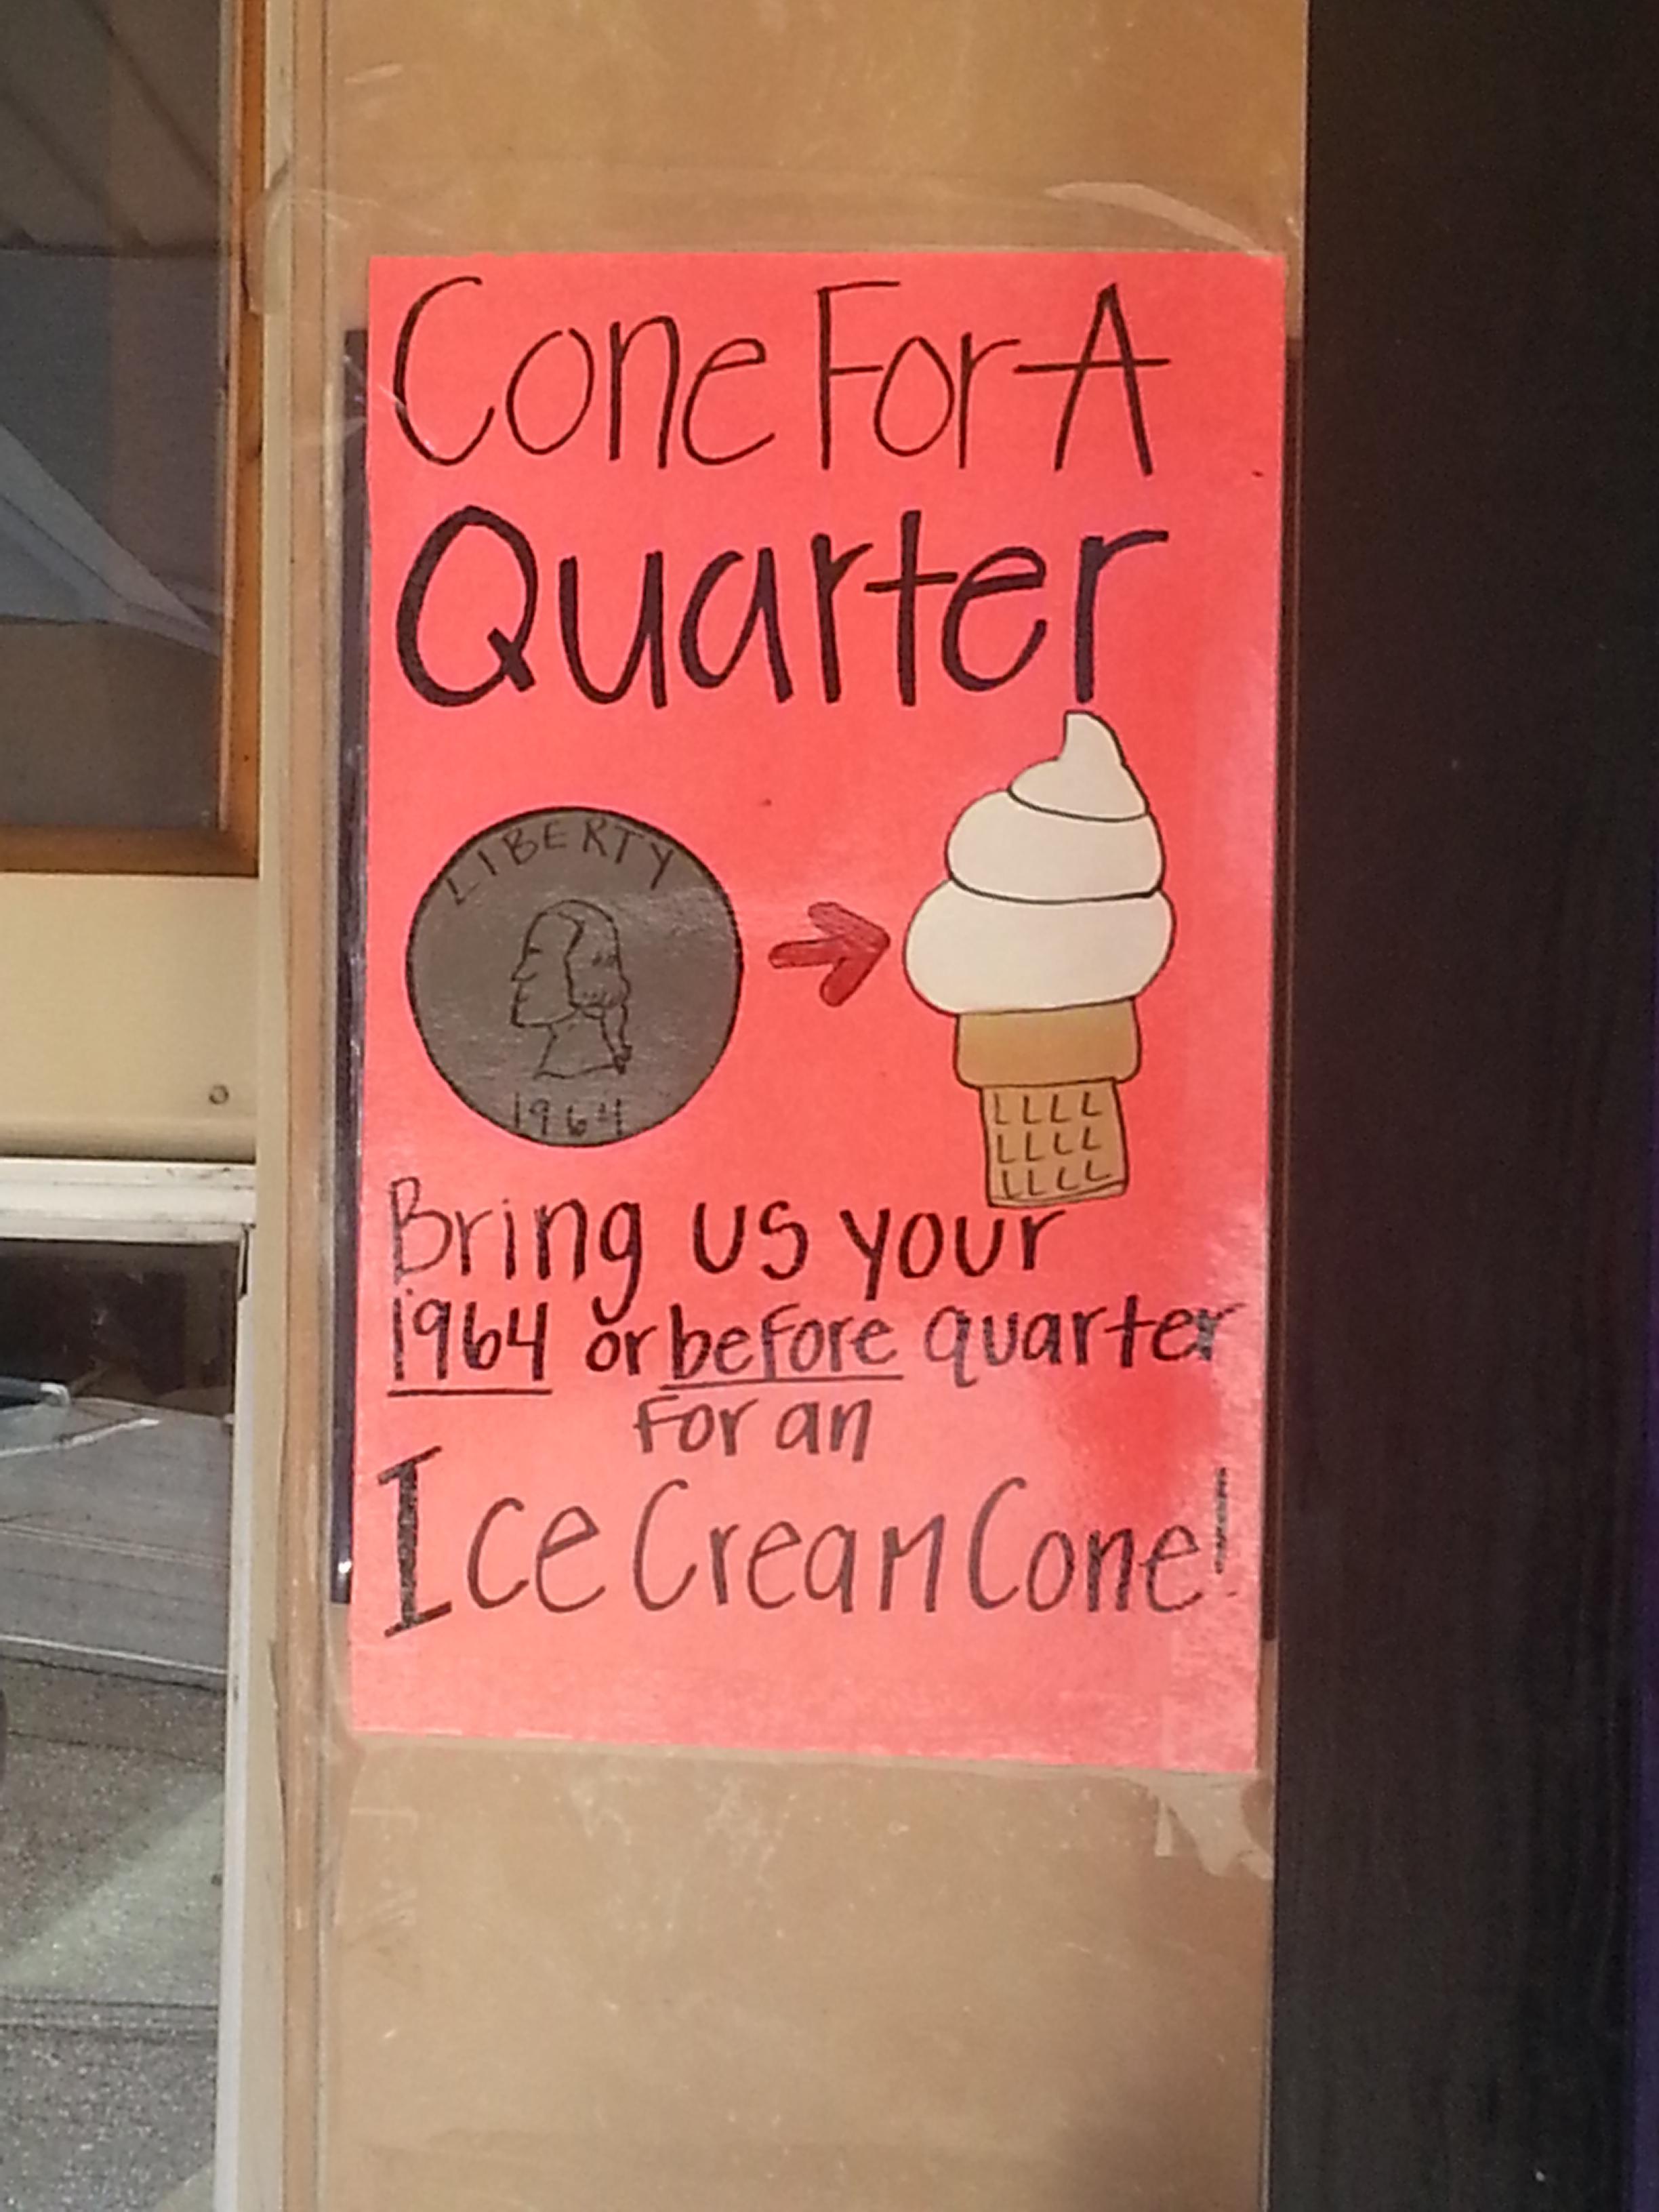 Cone For A
Quarter
LIBERTY
1964
LLLL
LLLL
LLLL
Bring us your
1964 or before quarter
For an
Ice Cream Cone!